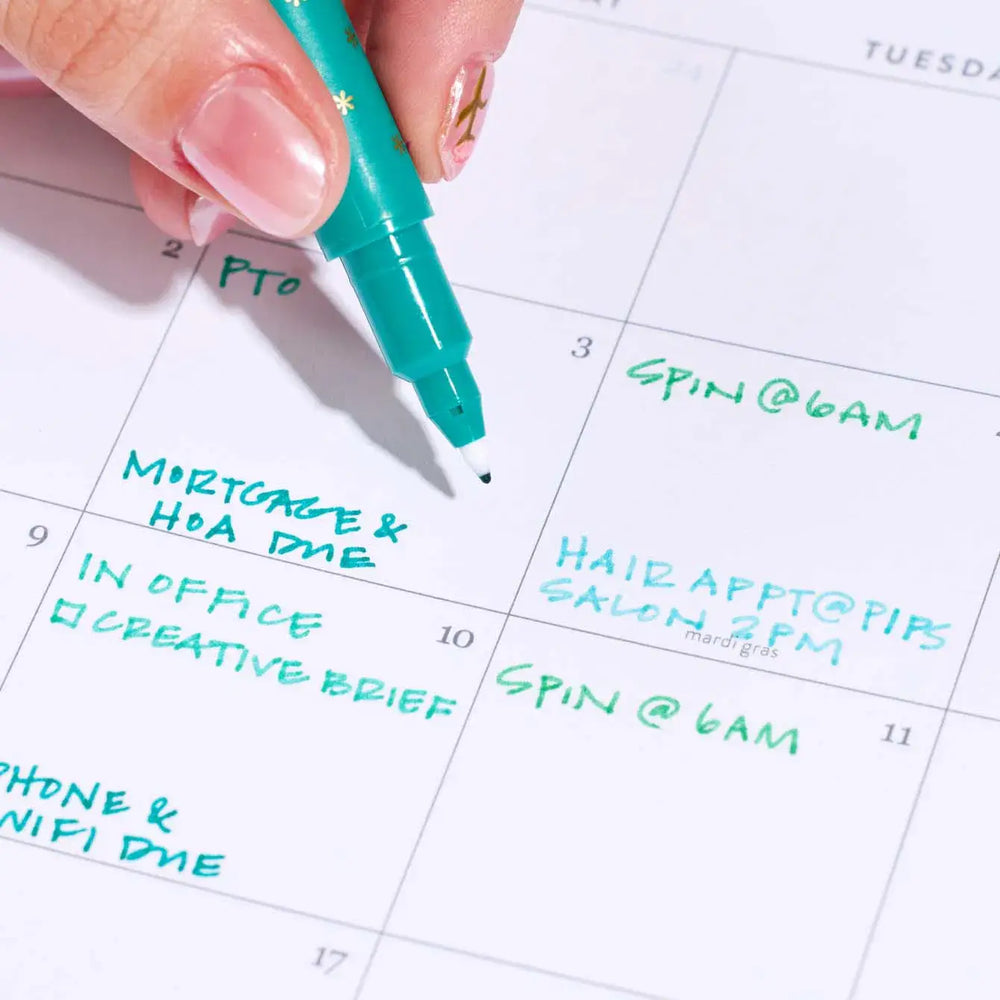 TUESDA
24
2
PTO
3
SPIN @ 6AM
MORTGAGE &
HOA DUE
HAIR APPT @ PIPS
SALON 2PM
mardi gras
9
IN OFFICE
CREATIVE BRIEF
10
SPIN @ 6AM
11
PHONE &
WIFI DUE
17